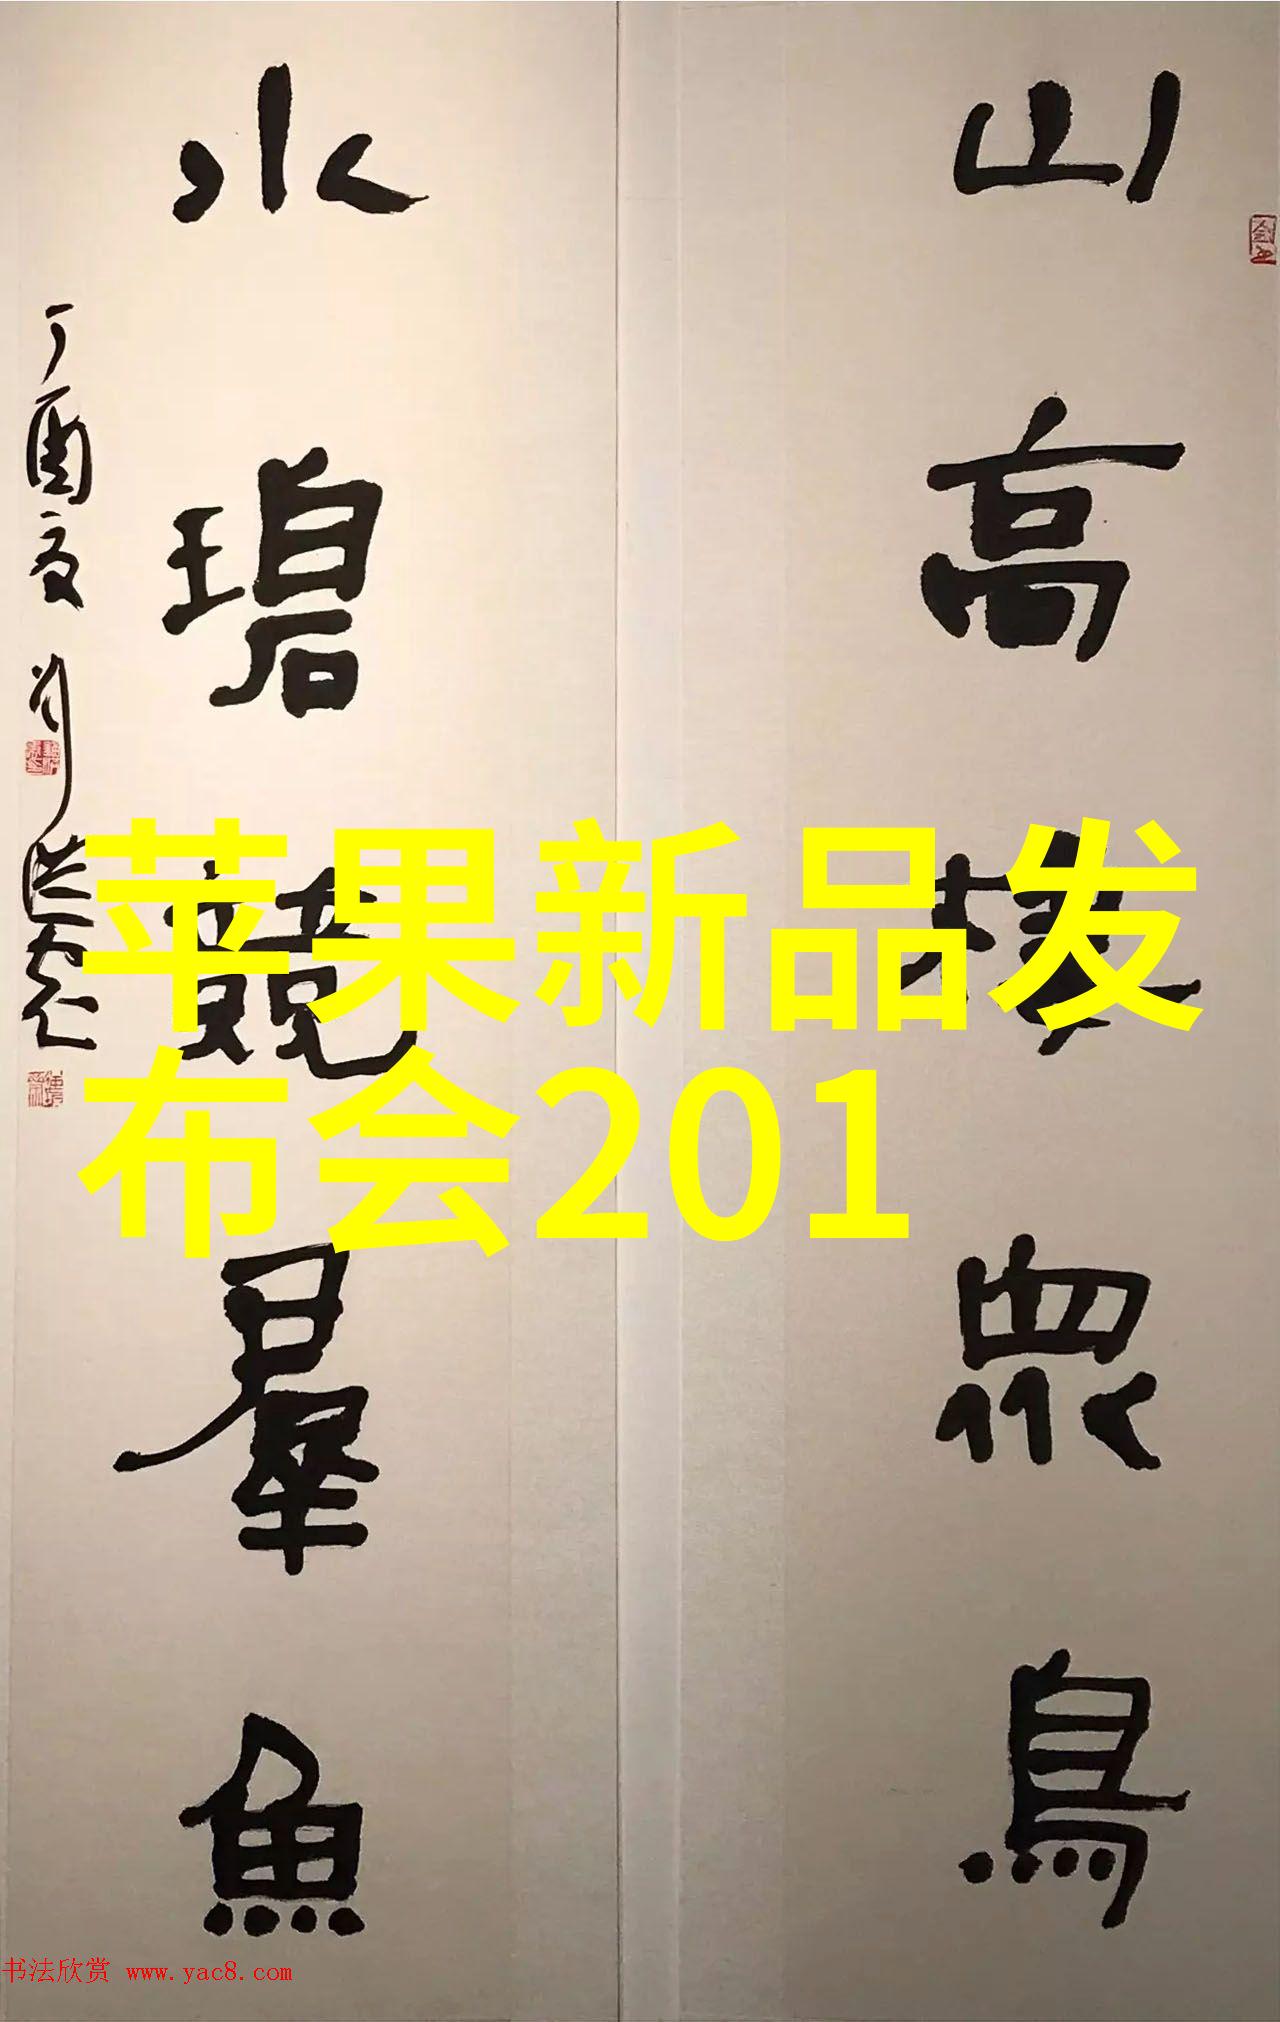 山高棲眾鳥
水碧競羣魚
丁酉夏
苹果新品发
布会201
书法欣赏 www.yac8.com